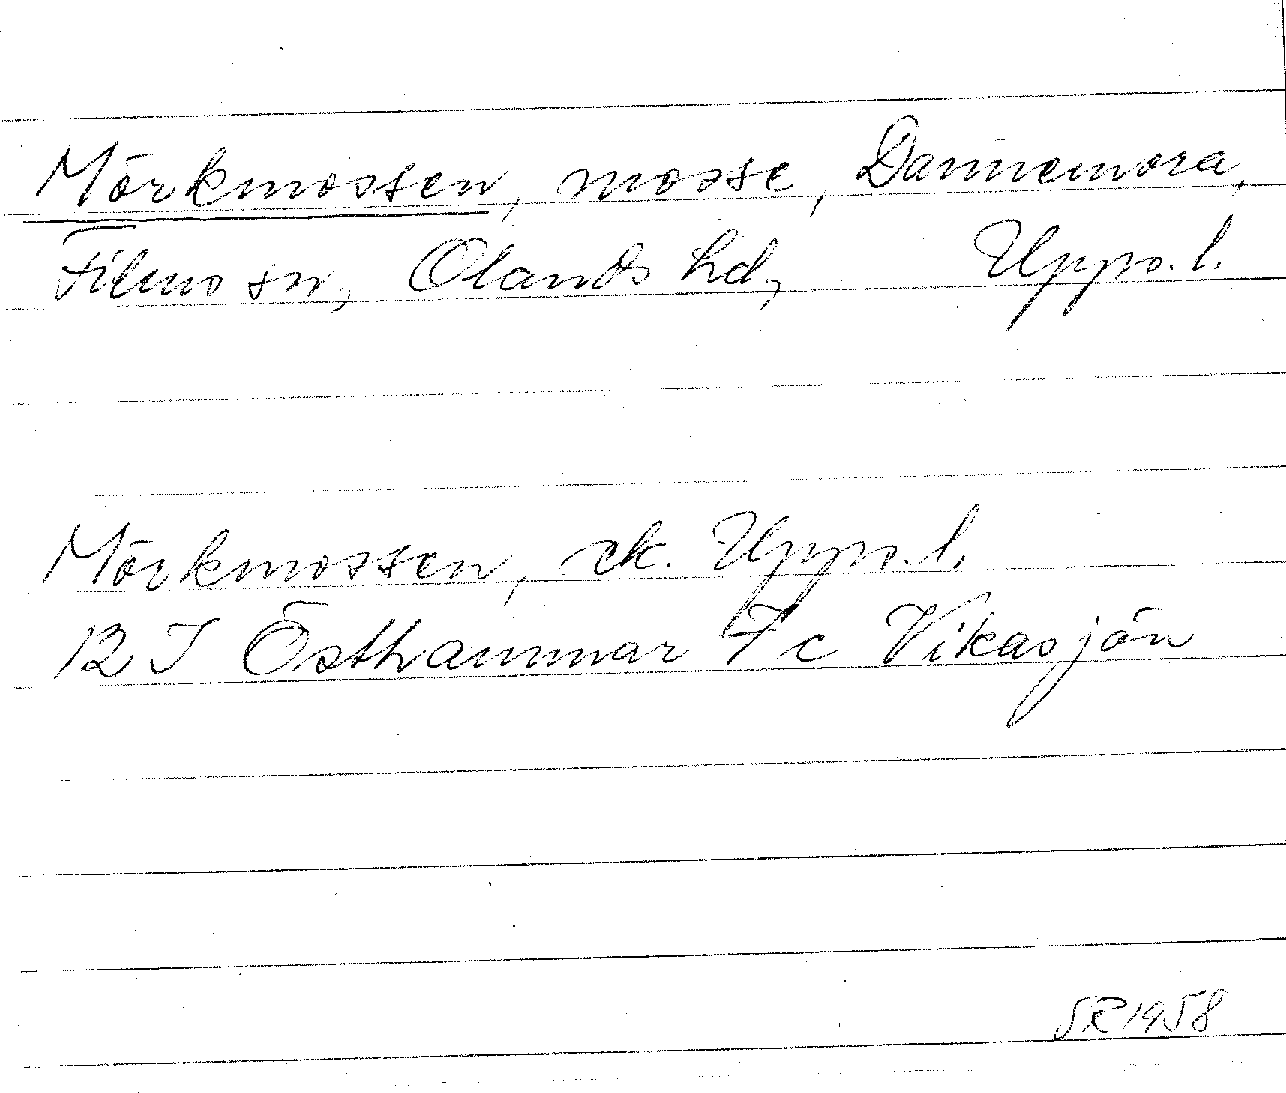 Mörkmossen, mosse, Dannemora,
Films sn, Olands hd, Upps. l.
Mörkmossen, ek. Upps. l.
12 I Östhammar 7 c Vikasjön
SR 1958